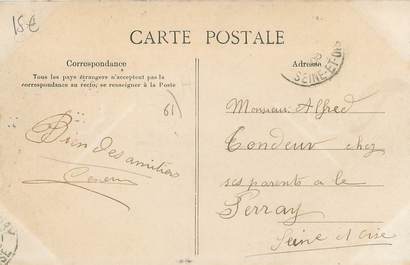 15€
CARTE POSTALE
Correspondance
Tous les pays étrangers n'acceptent pas la
correspondance au recto; se renseigner à la Poste
61
Bien des amitiés
Adresse
SEINE-ET-OISE
Monsieur Alfred
Tondeur chez
ses parents a le
Perray
Seine et oise